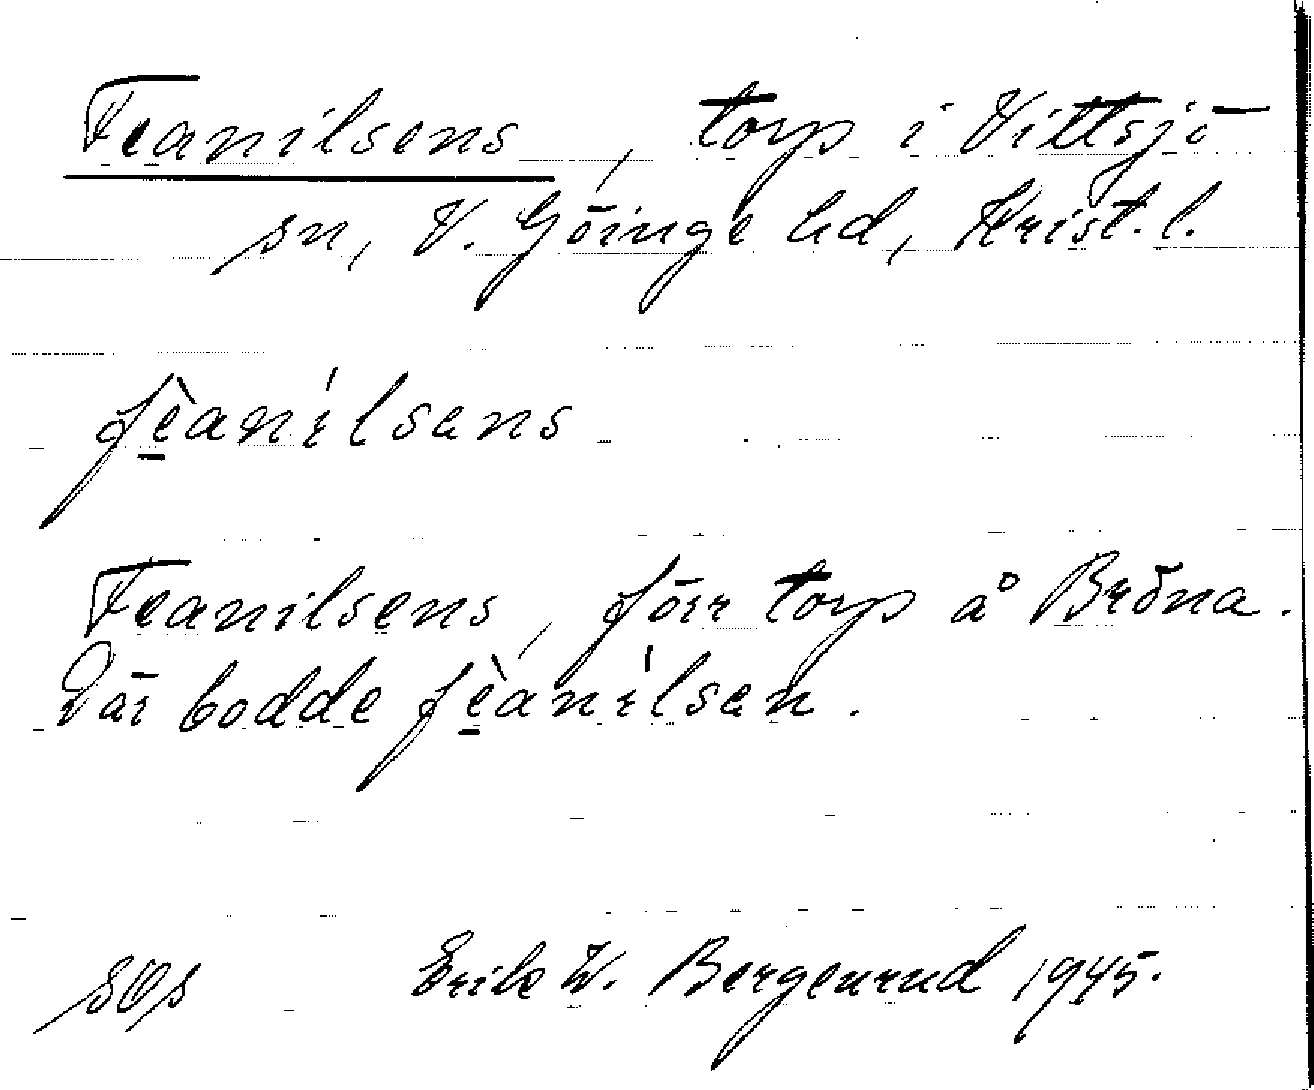 Feanilsens, torp i Vittsjö
sn, V. Göinge hd, Krist. l.
fèanílsans
Feanilsens, förr torp å Bröna.
Där bodde fèanílsan.
Erik W. Bergenrud 1945.